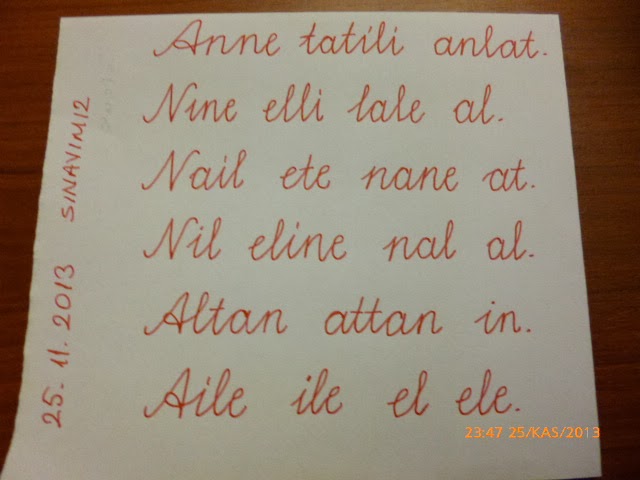 Anne tatili anlat.
Nine elli lale al.
Nail ete nane at.
Nil eline nal al.
Altan attan in.
Aile ile el ele.
25.11.2013 SINAVIMIZ
23:47 25/KAS/2013